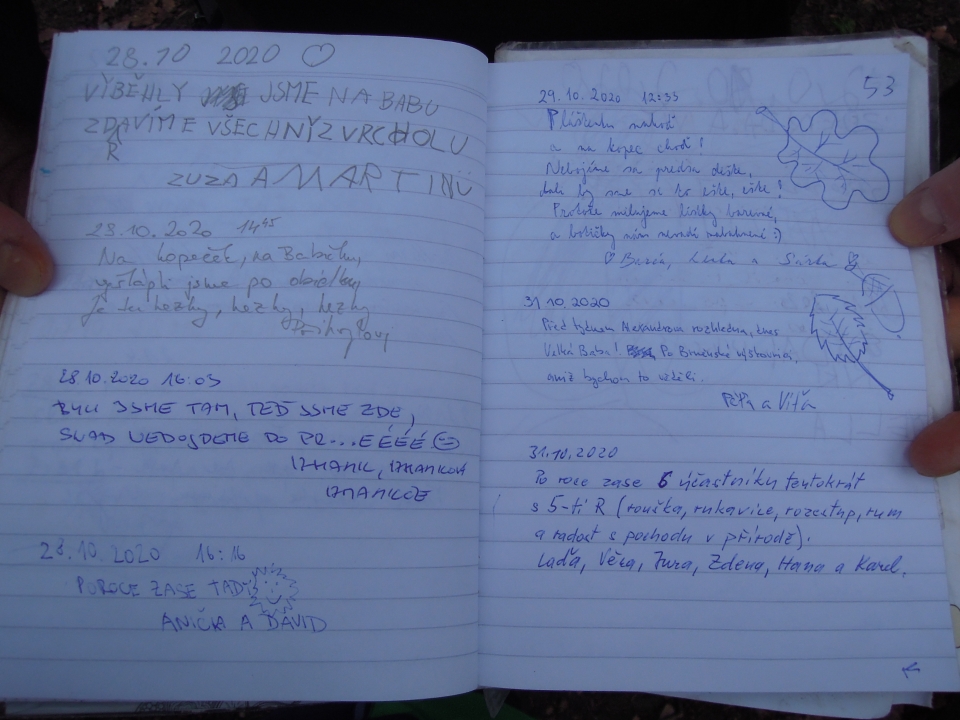 28.10 2020 ♡
VÝBĚHLY JSME NA BABU
ZDAVÍME VŠECHNY Z VRCHOLU
R
ZUZA A MARTINŮ
28.10.2020 14 45
Na kopeček, na Babičku,
vyšlápli jsme po obídku
Je tu hezky, hezky, hezky
28.10.2020 16:03
BYLI JSME TAM, TEĎ JSME ZDE,
SNAD NEDOJDEME DO PR...EÉÉÉ
28.10.2020 16:16
PO ROCE ZASE TADY
ANIČKA A DAVID
53
29.10.2020 12:35
a na kopec chodí!
Nebojíme sa predsa dešte,
Protože milujeme lístky barevné,
a botičky nám nevadí :)
31.10.2020
Před týdnem Alexandrova rozhledna, dnes
Velká Baba! Po Brněnské výškovnici,
aniž bychom to věděli.
Péťa a Víťa
31.10.2020
Po roce zase 6 účastníků tentokrát
s 5-ti R (rouška, rukavice, rozestup, rum
a radost s pochodu v přírodě).
Laďa, Věra, Jura, Zdena, Hana a Karel.